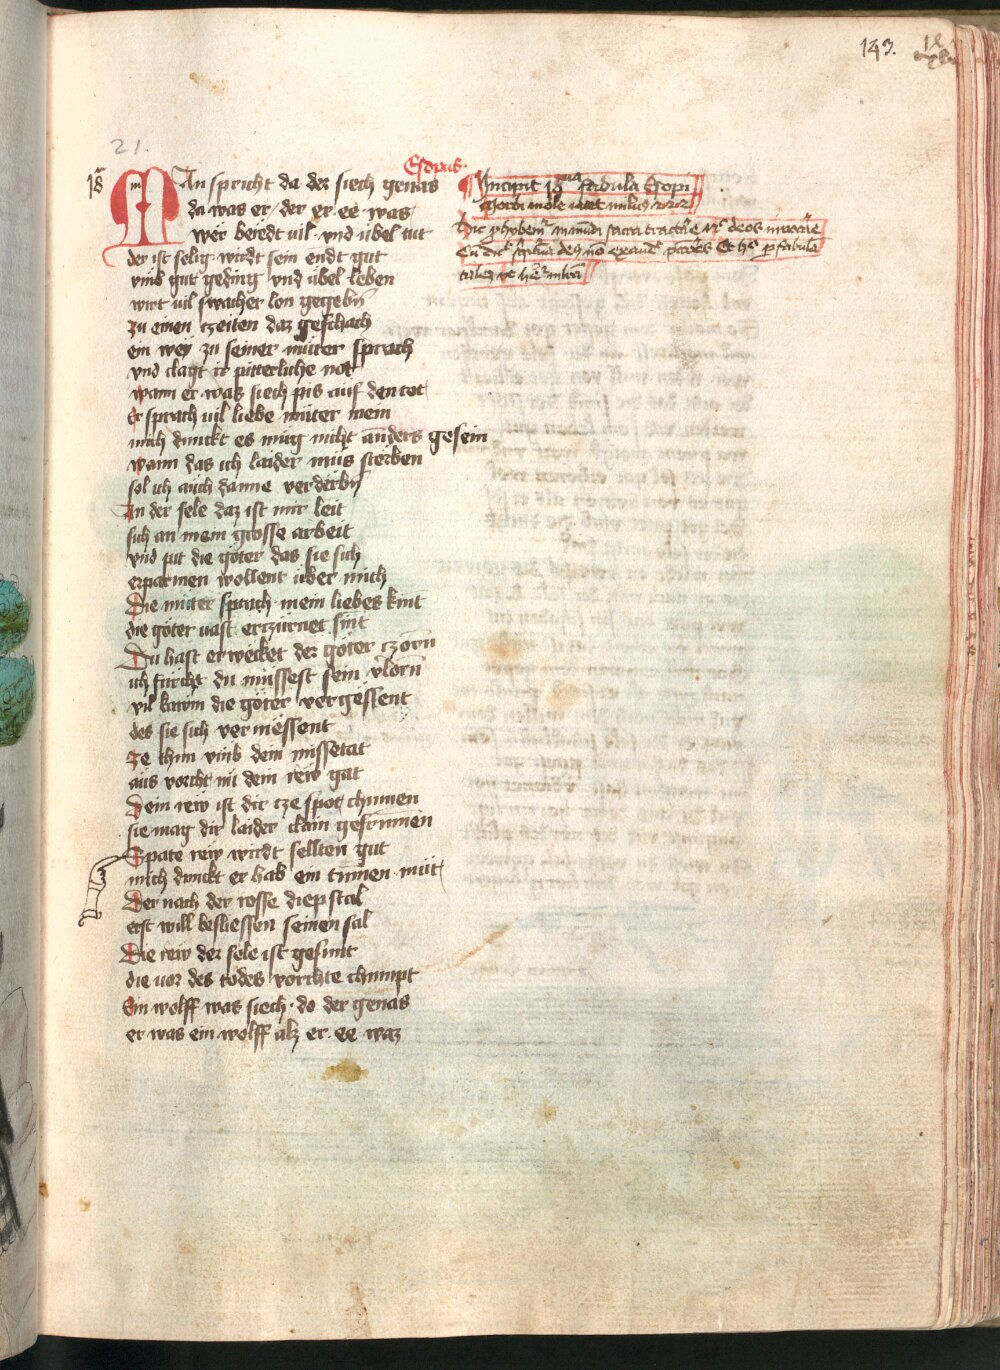 143.
21.
18
Esopus
MAn spricht da der siech genas
da was er / der er ee was
wer beredt uil vnd übel tut
der ist selig wirdt sein endt gut
vmb gut geding vnd übel leben
wirt uil swacher lon gegebn
zu einen czeiten daz geschach
ein wey zu seiner müter sprach
vnd clagt ir pitterliche not
wann er was siech pis auf den tot
Er sprach uil liebe müter mein
mich dunckt es müg nicht anders gesein
wann das ich laider mus sterben
sol ich auch danne verderbn
An der sele daz ist mir leit
sich an mein grosse arbeit
vnd pit die göter das sie sich
erparmen wollent über mich
Die müter sprach mein liebes kint
die göter uast erczürnet sint
Du hast erwecket der göter czorn
ich fürcht du müssest sein vlorn
vil kawm die göter vergessent
des sie sich vermessent
Ze thun vmb dein missetat
aus vorcht mit dem rew gat
Dein rew ist dir cze spot chumen
sie mag dir laider clain gefrumen
Spate rew wirdt sellten gut
mich dunckt er hab ein tumen mut
Der nach der rosse diepstal
erst will besliessen seinen sal
Die rew der sele ist gesunt
die uor des todes vorchte chumpt
Ein wolff was siech · do der genas
er was ein wolff alz er · ee waz
Incipit 18 fabula Esopi